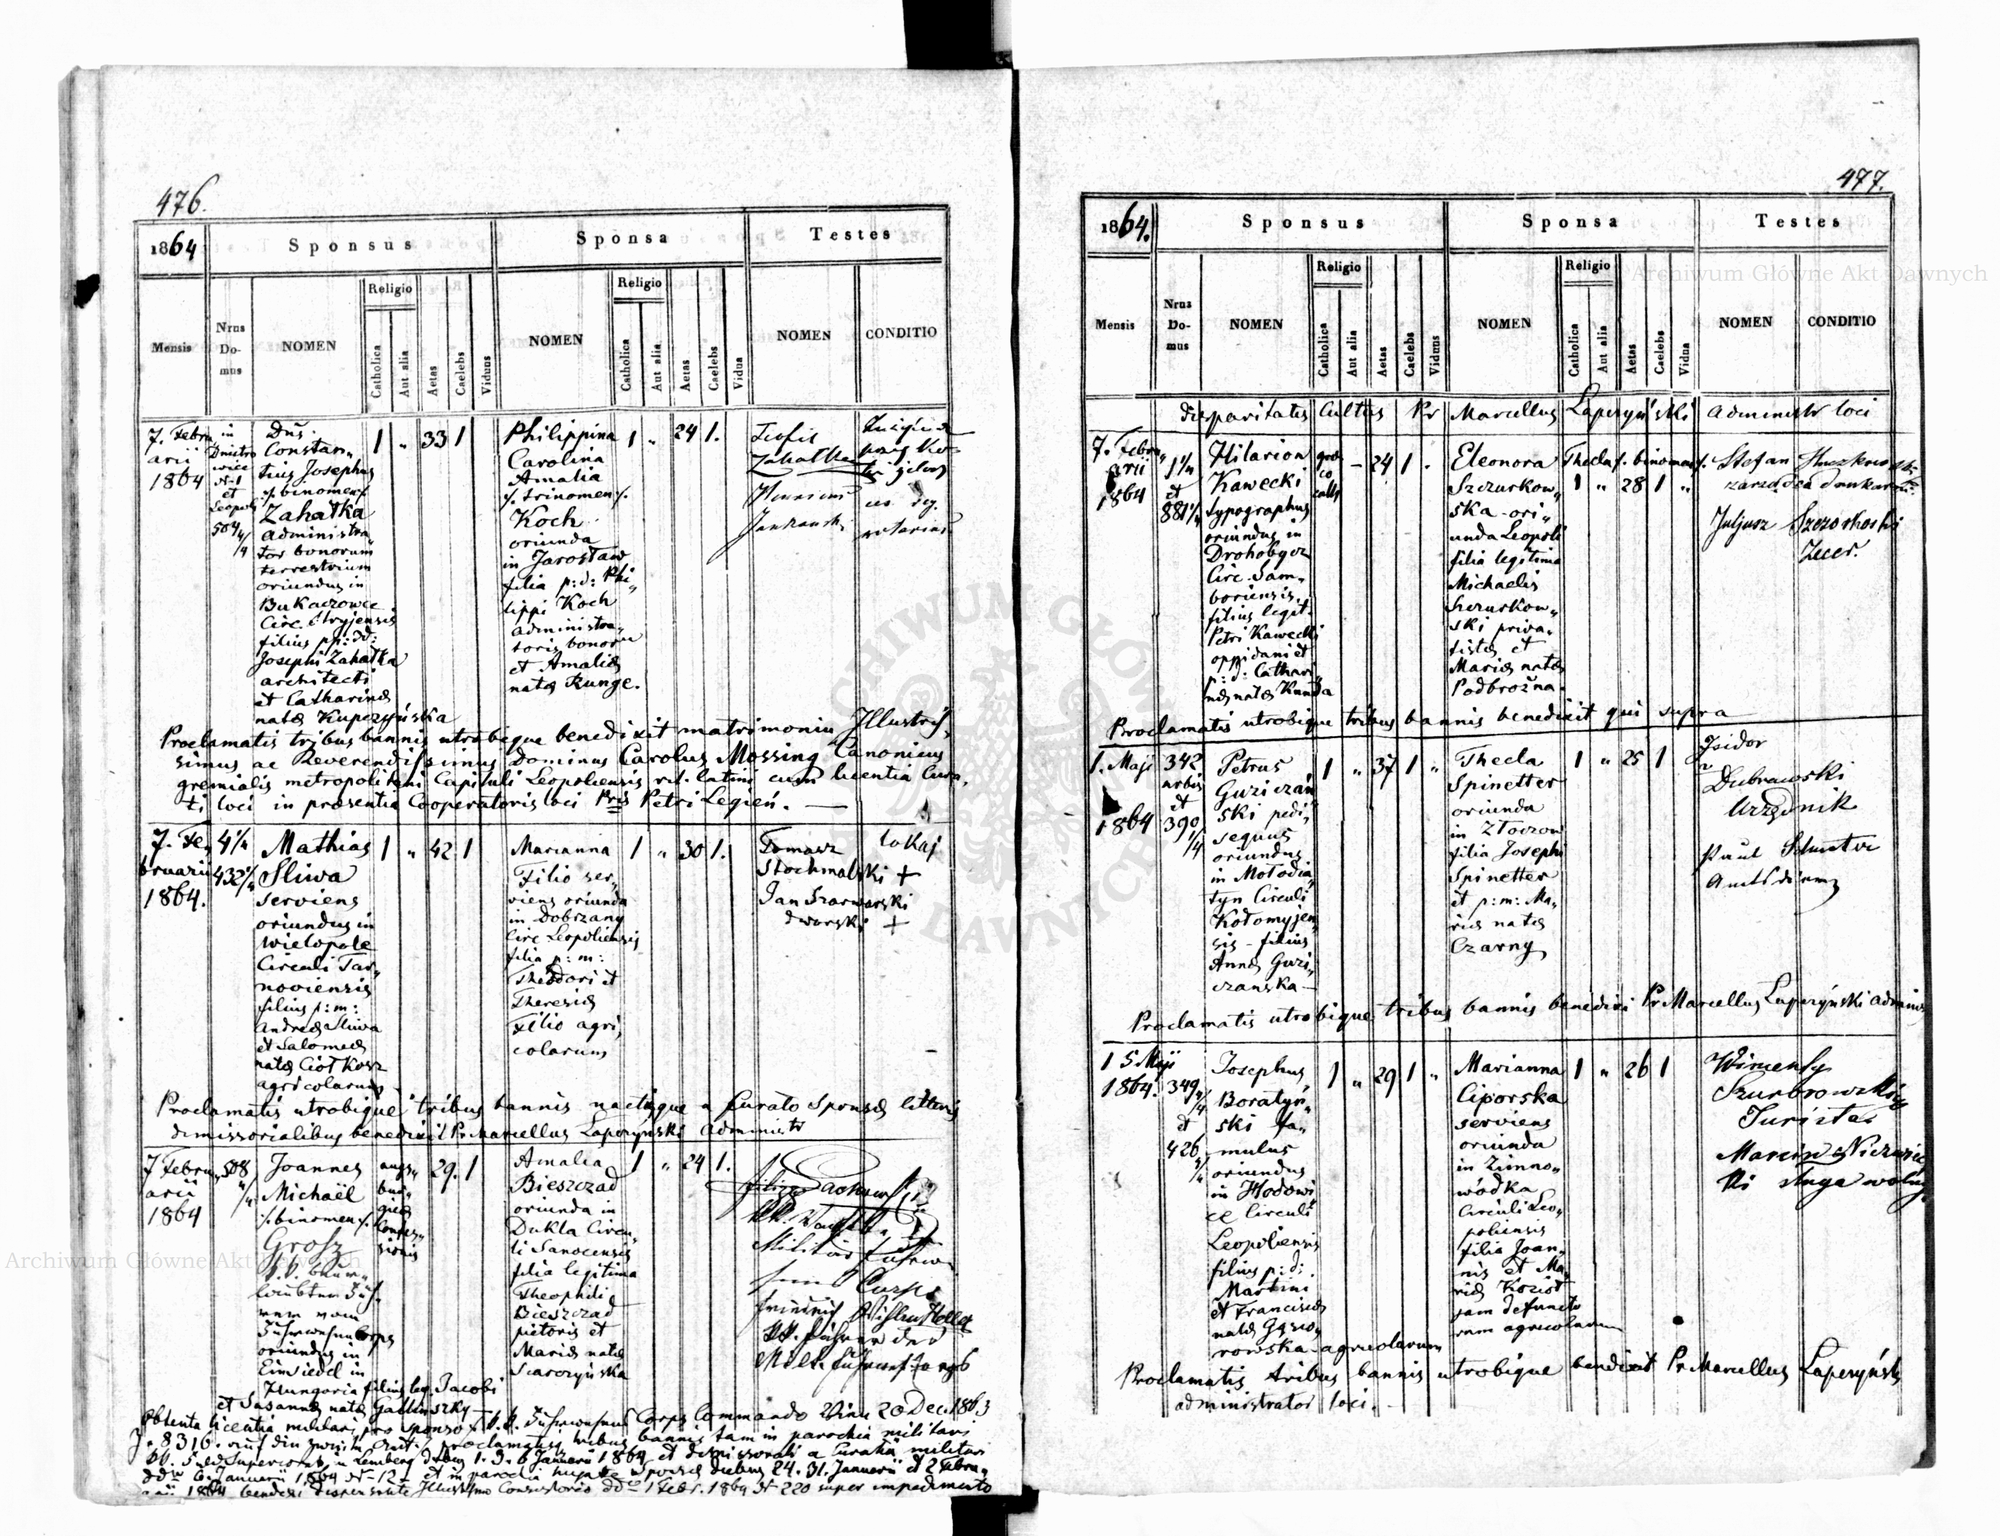 476.
1864
Sponsus
Sponsa
Testes
Mensis
Nrus Domus
NOMEN
Religio
Catholica
Aut alia
Aetas
Caelebs
Viduus
NOMEN
Religio
Catholica
Aut alia
Aetas
Caelebs
Vidua
NOMEN
CONDITIO
7. Febru
arii
1864
in
Dmitro
wice
N. 1
et
Leopoli
504 4/4
Dus.
Constan„
tius Josephus
/. binomen ./
Zahatka
administra„
tor bonorum
terrestrium
oriundus in
Bukaczowce
Circ. Stryjensis
filius pp: dd:
Josephi Zahatka
architecti
et Catharinæ
natæ Kupczyńska
1 „ 33 1
Philippina
Carolina
Amalia
/. trinomen ./
Koch
oriunda
in Jarosław
filia p: d: Phi„
lippi Koch
administra„
toris bonoru
et Amaliæ
natæ Runge.
1 „ 24 1.
Teofil
Zahatka
Proclamatis tribus bannis utrobique benedixit matrimoniu Illustris„
simus ac Reverendissimus Dominus Carolus Mossing Canonicus
gremialis metropolitani Capituli Leopoliensis rit. latini cum licentia Cura„
ti loci in præsentia Cooperatoris loci Pris Petri Legień.
7. Fe„
bruarii
1864.
4 1/4
432 4/4
Mathias
Sliwa
serviens
oriundus in
Wielopole
Circuli Tar„
noviensis
filius p: m:
Andreæ Sliwa
et Salomeæ
natæ Ciołkosz
agricolarum
1 „ 42 1
Marianna
Filio ser„
viens oriunda
in Dobrzany
Circ Leopoliensis
filia p: m:
Theodori et
Theresiæ
Filio agri„
colarum
1 „ 30 1.
Tomasz lokaj
Stochmalski +
Jan Szarwarski
dworski +
Proclamatis utrobique tribus bannis nactisque a Curato Sponsæ litteris
dimissorialibus benedixit Pr Marcellus Laperyński administr
7 Febru„
arii
1864
508
4/4
Joannes
Michaël
/. binomen ./
Grosz
oriundus in
Einsiedel in
Hungaria filius leg. Jacobi
et Susannæ natæ Gallinszky
augs„
bur„
gicæ
Confes„
sionis
29. 1
Amalia
Bieszczad
oriunda in
Dukla Circu„
li Sanocensis
filia legitima
Theophili
Bieszczad
pictoris et
Mariæ natæ
Skarczyńska
1 „ 24 1.
Obtenta licentia militari pro sponso Corps Commando Wien 20 Dec. 1863
N. 8316. proclamatisq tribus bannis tam in parochia militari
in Lemberg diebus 1. 3. 6 Januarii 1864 et dimissorali a Curato militari
ddto 6. Januarii 1864 N-12- et in parochia hujate Sponsæ diebus 24. 31. Januarii et 2 Febru„
arii 1864 benedixi dispensante Illustrsmo Consistorio ddto 1 Febr. 1864 N 220 super impedimento
477.
1864.
Sponsus
Sponsa
Testes
Mensis
Nrus Domus
NOMEN
Religio
Catholica
Aut alia
Aetas
Caelebs
Viduus
NOMEN
Religio
Catholica
Aut alia
Aetas
Caelebs
Vidua
NOMEN
CONDITIO
disparitatis Cultus Pr Marcellus Laperyński Administr loci
7. Febru„
arii
1864
et
881
Hilarion
Kawecki
typographus
oriundus in
Drohobycz
Circ. Sam„
boriensis,
filius legit.
Petri Kawecki
oppidani et
p: d: Cathari„
næ natæ Kunda
græ
co
cath
– 24 1 „
Eleonora Thecla /. binomen ./
Szczurkow„
ska – ori„
unda Leopoli
filia legitima
Michaelis
Szczurkow„
ski priva„
tistæ et
Mariæ natæ
Podbrożna.
1 „ 28 1 „
Stefan Huczkowski
zarządca drukarni.
Juljusz
Zecer.
Proclamatis utrobique tribus bannis benedixit qui supra
1. Maji
1864
342
urbis
et
390
1/4
Petrus
Guziczań„
ski pedi„
sequus
oriundus
in Mołodia„
tyn Circuli
Kołomyjen„
sis – filius
Annæ Guzi„
czanska –
1 „ 37 1 „
Thecla
Spinetter
oriunda
in Złoczow
filia Josephi
Spinetter
et p: m: Ma„
riæ natæ
Czarny
1 „ 25 1
Isidor
Dubrawski
Urzędnik
Paul
Amtsdiener
Proclamatis utrobique tribus bannis benedixi Pr Marcellus Laperyński Adminis
15 Maji
1864.
349 4/4
et
426
4/4
Josephus
Boratyń„
ski fa„
mulus
oriundus
in Hodowi
ce Circuli
Leopoliensis
filius p: d:
Martini
et Franciscæ
natæ Gąsio„
rowska agricolarum
1 „ 29 1 „
Marianna
Ciporska
serviens
oriunda
in Zimno„
wódka
Circuli Leo„
poliensis
filia Joan„
nis et Ma„
riæ Kozioł
jam defuncto
rum agricolarum
1 „ 26 1
Wincenty
Szunbrowski
Jurista
Marcin
Sługa
Proclamatis tribus bannis utrobique bendixit Pr Marcellus Laperyński
administrator loci. –
Archiwum Główne Akt Dawnych
Archiwum Główne Akt Dawnych
ARCHIWUM GŁÓWNE AKT DAWNYCH